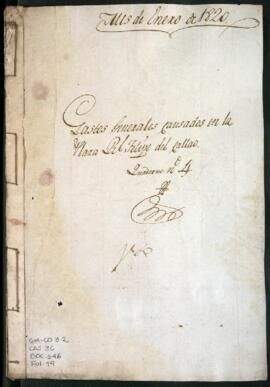 Mes de Enero de 1820.
Gastos Generales causados en la
Plaza Rl. Felipe del Callao.
Quaderno nº. 4
GM-CO 3.2
CAJ 36
DOC 246
FOL 99